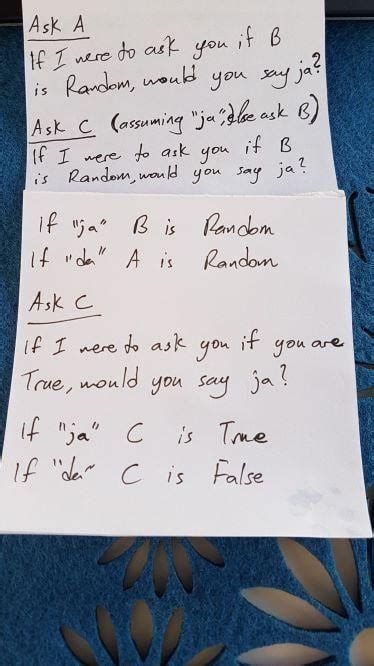 Ask A
If I were to ask you if B
is Random, would you say ja?
Ask C (assuming "ja", else ask B)
If I were to ask you if B
is Random, would you say ja?
If "ja" B is Random
If "da" A is Random
Ask C
If I were to ask you if you are
True, would you say ja?
If "ja" C is True
If "da" C is False